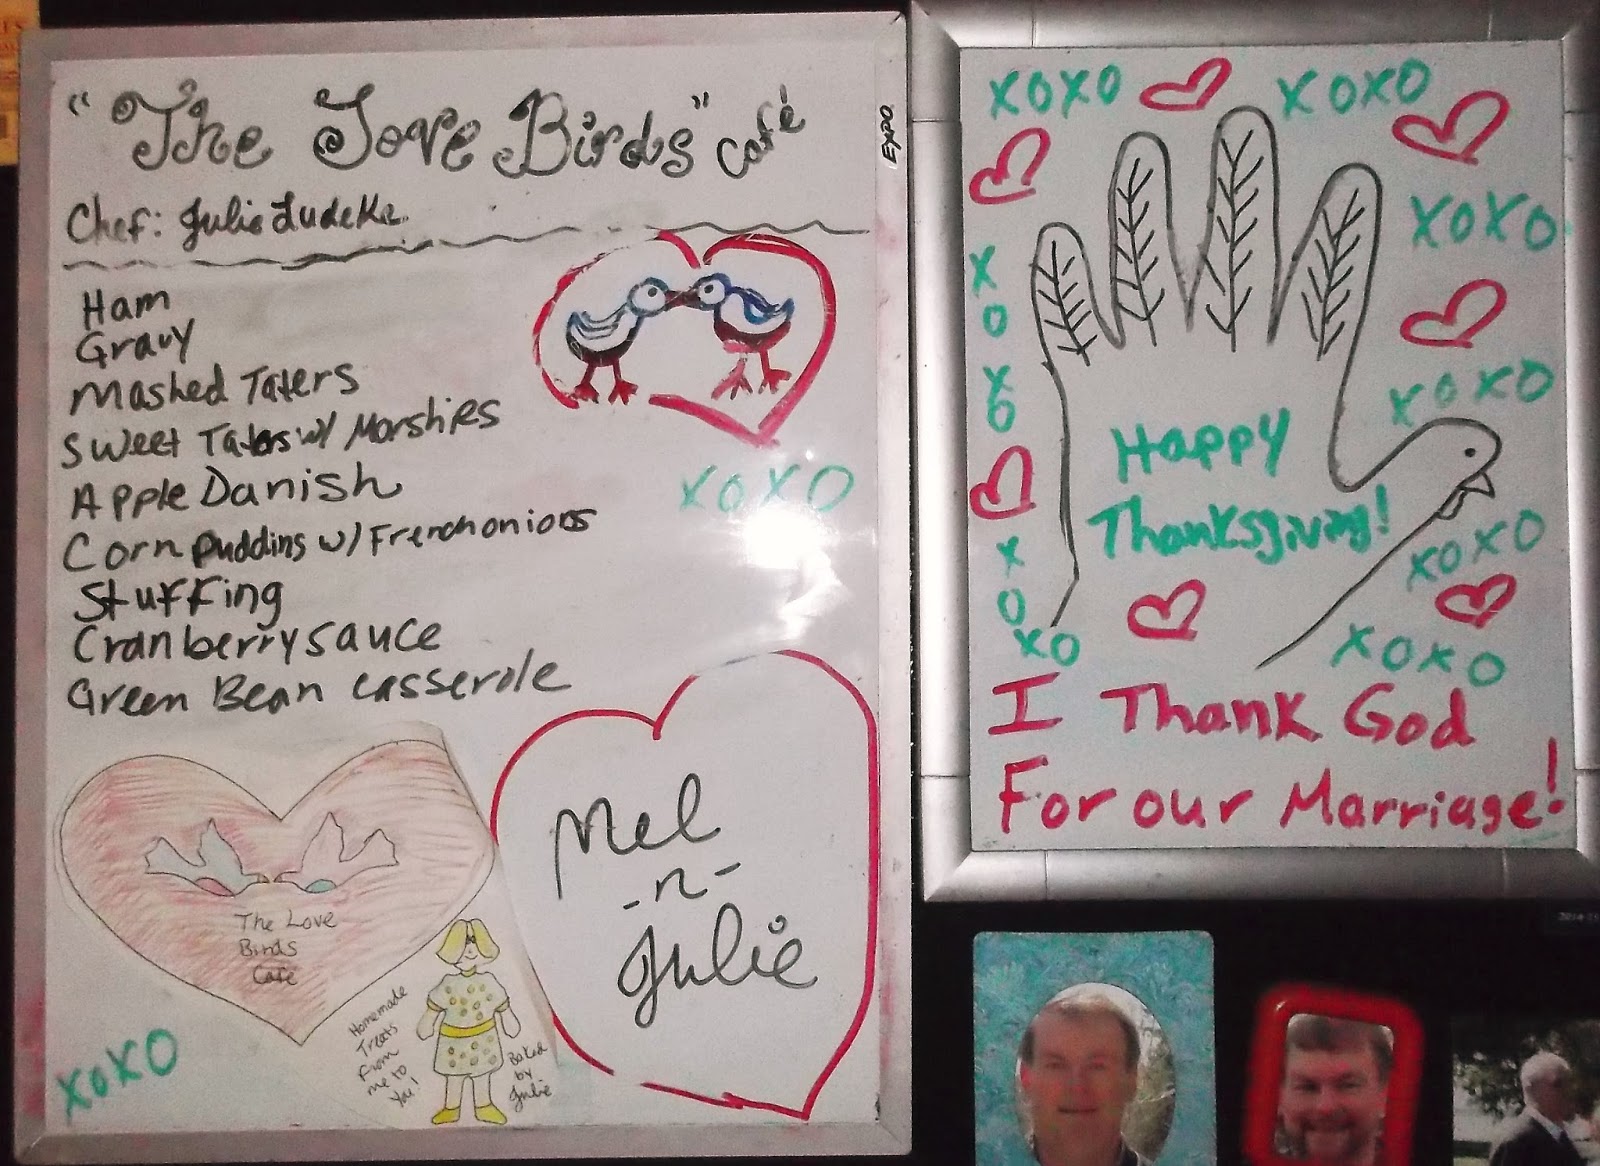 "The Love Birds" café
EXPO
Chef: Julie Ludeke
Ham
Gravy
Mashed Taters
Sweet Taters w/ Marshies
Apple Danish
Corn Pudding w/ French onions
Stuffing
Cranberry sauce
Green Bean casserole
XOXO
Mel
-n-
Julie
The Love
Birds
Cafe
Homemade
Treats
From
me to
You!
Baked
by
Julie
XOXO
XOXO
XOXO
XOXO
X
O
X
O
XOXO
Happy
Thanksgiving!
XOXO
X
O
XO
XOXO
I Thank God
For our Marriage!